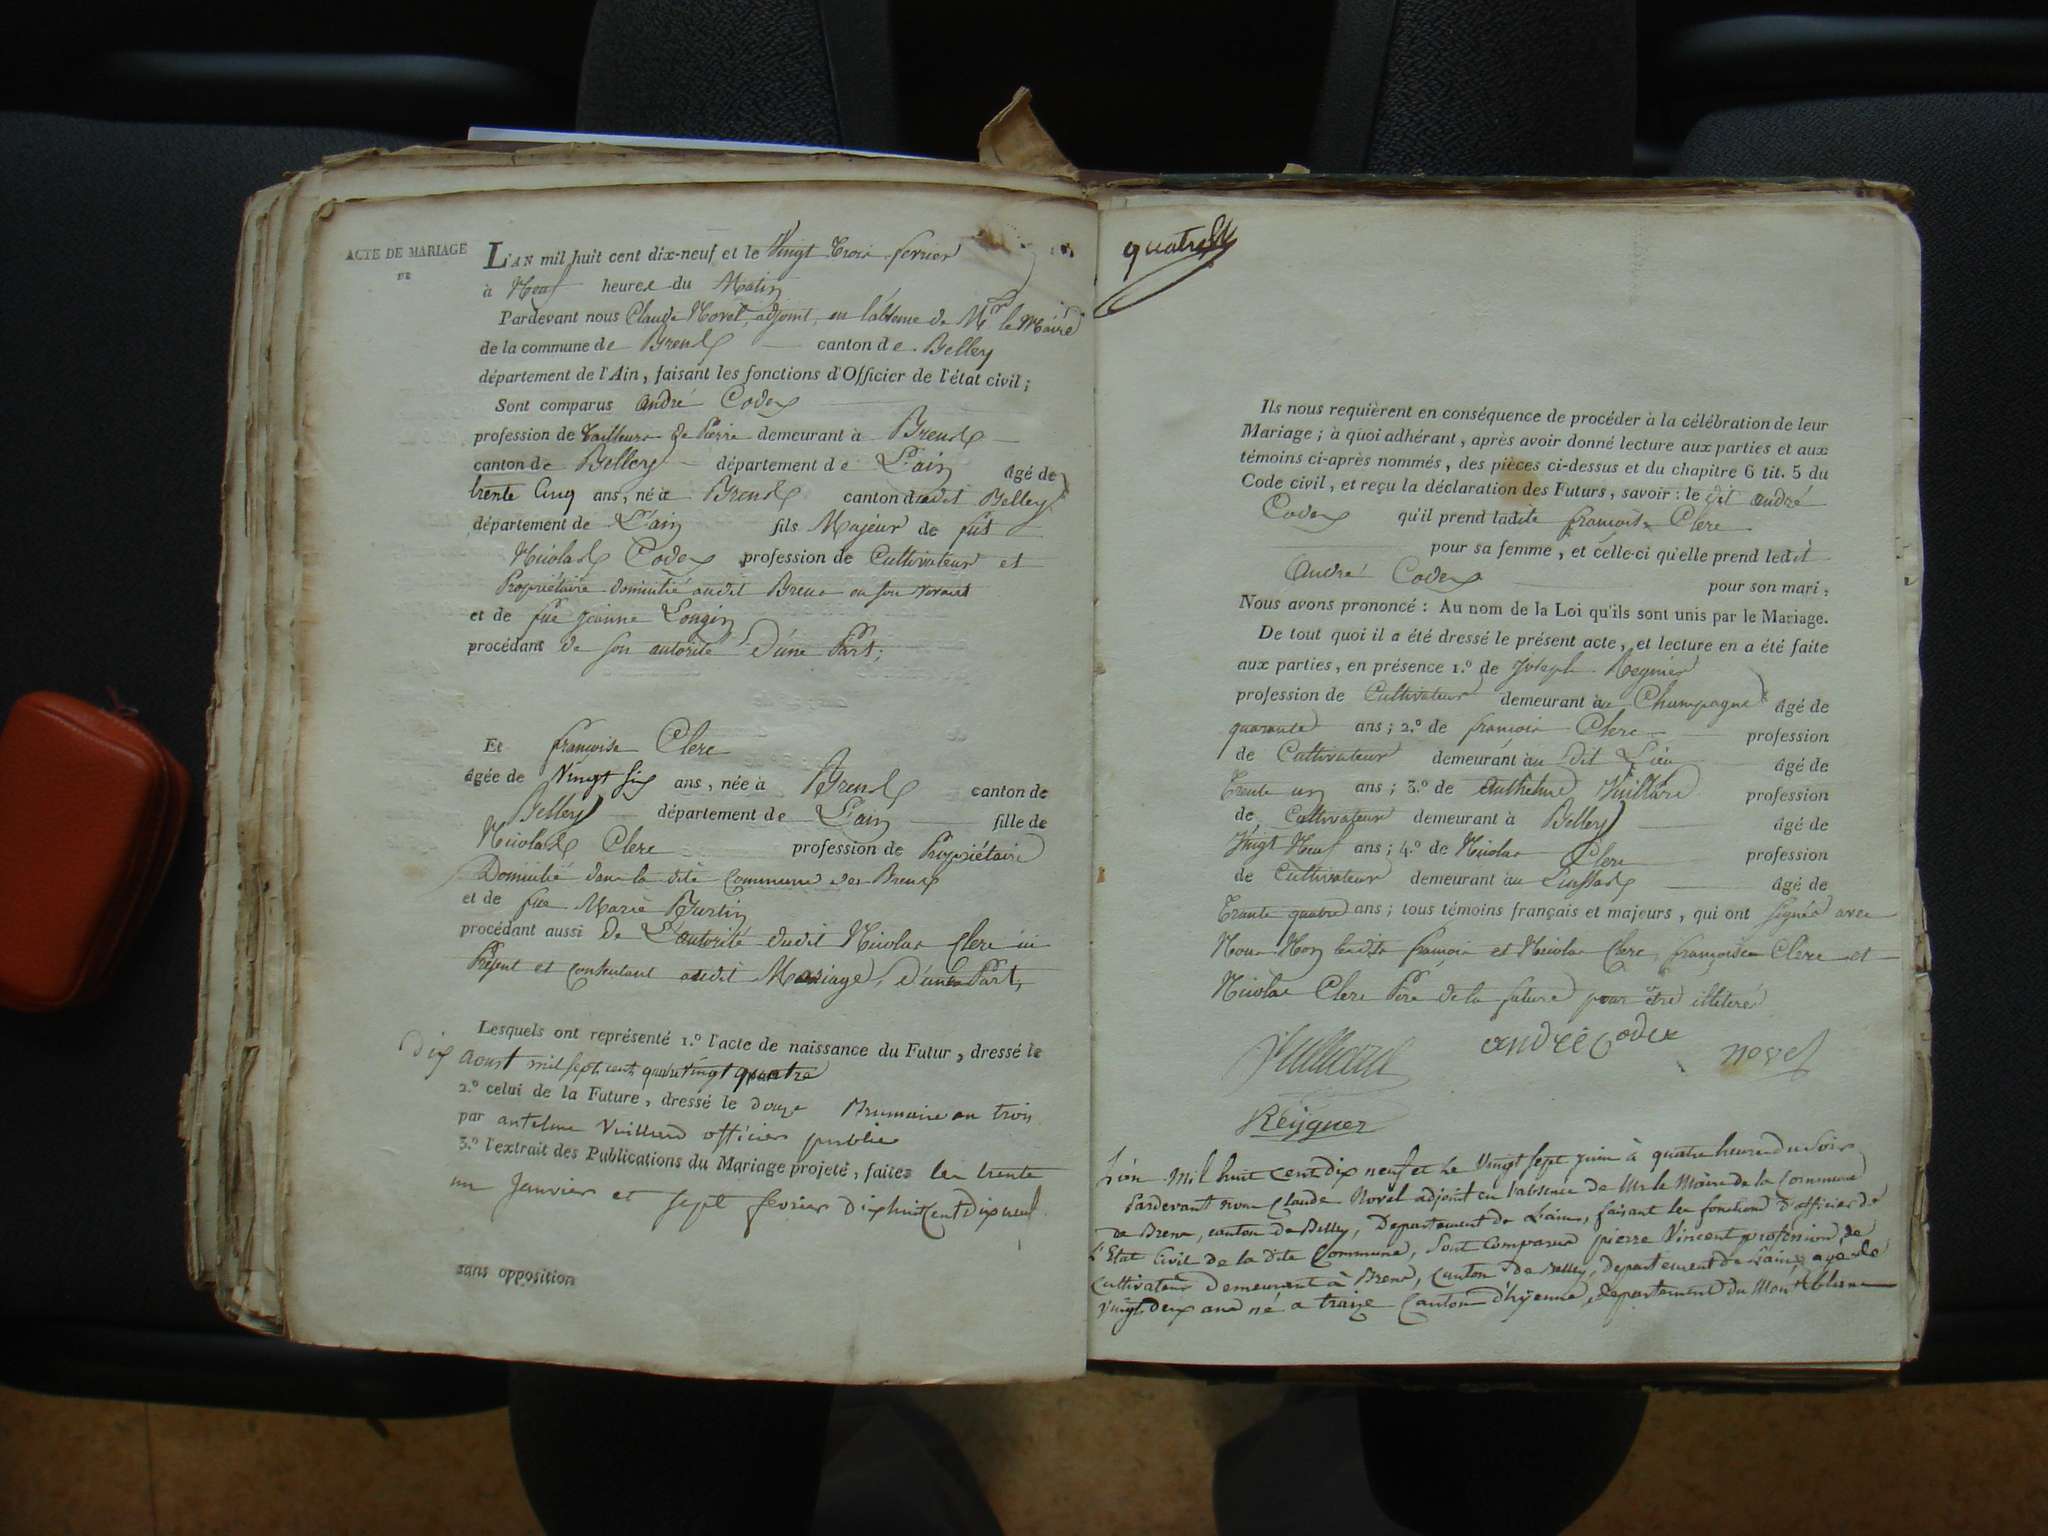 ACTE DE MARIAGE
DE
L'AN mil huit cent dix-neuf et le Vingt Trois fevrier
à Neuf heures du Matin
Pardevant nous Claude Novel, adjoint, en l'absence de Mr le Maire
de la commune de Brens canton de Belley
département de l'Ain, faisant les fonctions d'Officier de l'état civil;
Sont comparus andré Codex
profession de tailleur de Pierre demeurant à Brens
canton de Belley département de L'ain âgé de
trente Cinq ans, né à Brens canton dudit Belley
département de L'ain fils Majeur de fût
Nicolas Codex profession de Cultivateur et
Propriétaire domicilié audit Brens en son vivant
et de fûe jeanne Longin
procédant de son autorité D'une Part;
Et françoise Clerc
âgée de Vingt Six ans, née à Brens canton de
Belley département de L'ain fille de
Nicolas Clerc profession de Propriétaire
Domicilié dans la dite Commune de Brens
et de fûe Marie Burtin
procédant aussi De L'autorité dudit Nicolas Clerc ici
Présent et Consentant audit Mariage, D'une Part,
Lesquels ont représenté 1.º l'acte de naissance du Futur, dressé le
dix aoust mil sept cent quatre vingt quatre
2.º celui de la Future, dressé le douze Brumaire an trois
par antelme Vuilliard officier public
3.º l'extrait des Publications du Mariage projeté, faites les trente
un Janvier et sept fevrier dix huit Cent dix neuf
sans opposition
quatre
Ils nous requièrent en conséquence de procéder à la célébration de leur
Mariage; à quoi adhérant, après avoir donné lecture aux parties et aux
témoins ci-après nommés, des pièces ci-dessus et du chapitre 6 tit. 5 du
Code civil, et reçu la déclaration des Futurs, savoir: le dit andré
Codex qu'il prend ladite françoise Clerc
pour sa femme, et celle-ci qu'elle prend ledit
André Codex pour son mari,
Nous avons prononcé: Au nom de la Loi qu'ils sont unis par le Mariage.
De tout quoi il a été dressé le présent acte, et lecture en a été faite
aux parties, en présence 1.º de Joseph Reynier
profession de Cultivateur demeurant au Champagne âgé de
quarante ans; 2.º de françois Clerc profession
de Cultivateur demeurant au dit Lieu âgé de
Trente un ans; 3.º de Anthelme Vuillard profession
de Cultivateur demeurant à Belley âgé de
Vingt Neuf ans; 4.º de Nicolas Clerc profession
de Cultivateur demeurant au âgé de
Trante quatre ans; tous témoins français et majeurs, qui ont signés avec
Nous Non lesdits françois et Nicolas Clerc, françoise Clerc et
Nicolas Clerc Père de la future pour être illiterés
Vuilliard andré Codex novel
Reygner
L'an mil huit cent dix neuf et le Vingt sept juin à quatre heures du soir
Pardevant nous Claude Novel adjoint en l'absence de Mr le Maire de la Commune
de Brens, canton de Belley, Departement de L'ain, faisant les fonctions d'officier de
l'Etat Civil de la Dite Commune, Sont Comparus pierre Vincent profession de
Cultivateur Demeurant à Brens, Canton de Belley, departement de L'ain, agé de
Vingt deux ans né a traize Canton d'hyenne, departement du Mont blanc